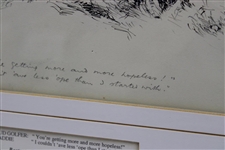 getting more and more hopeless! "
'ave less 'ope than I started with."
GOLFER: "You're getting more and more hopeless!"
ADDIE: "I couldn't 'ave less 'ope than I